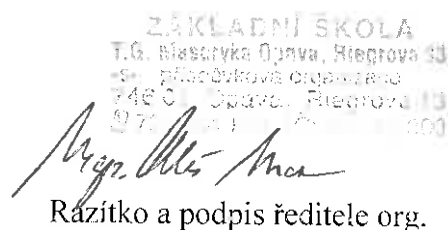 ZÁKLADNÍ ŠKOLA
T.G. Masaryka Opava, Riegrova 13
-5- příspěvková organizace
746 01 Opava, Riegrova 13
Mgr. Aleš
Razítko a podpis ředitele org.